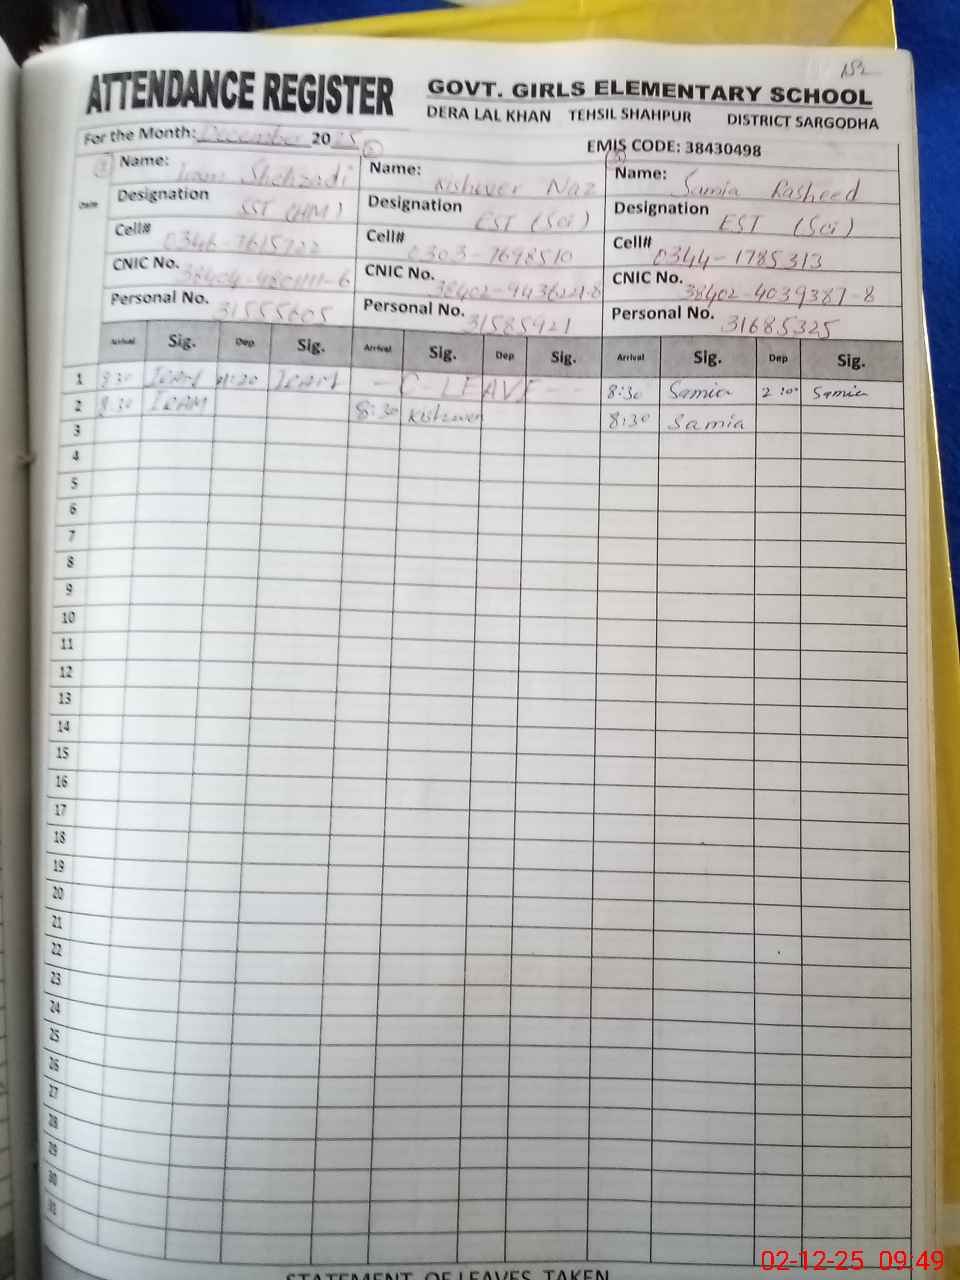 152
ATTENDANCE REGISTER
GOVT. GIRLS ELEMENTARY SCHOOL
DERA LAL KHAN TEHSIL SHAHPUR DISTRICT SARGODHA
For the Month: December 2025
EMIS CODE: 38430498
Date
Name: Iram Shehzadi Name: Kishwer Naz Name: Samia Rasheed
Designation SST (HM) Designation EST (Sci) Designation EST (Sci)
Cell# 0346-7615722 Cell# 0303-7698510 Cell# 0344-1785313
CNIC No. CNIC No. CNIC No. 38402-4039387-8
Personal No. 31555605 Personal No. 31585921 Personal No. 31685325
Arrival Sig. Dep Sig. Arrival Sig. Dep Sig. Arrival Sig. Dep Sig.
1 8:30 IRAM IRAM - C - LEAVE - - 8:30 Samia 2:00 Samia
2 8:30 IRAM 8:30 Kishwer 8:30 Samia
3
4
5
6
7
8
9
10
11
12
13
14
15
16
17
18
19
20
21
22
23
24
25
26
27
28
29
30
31
STATEMENT OF LEAVES TAKEN
02-12-25 09:49